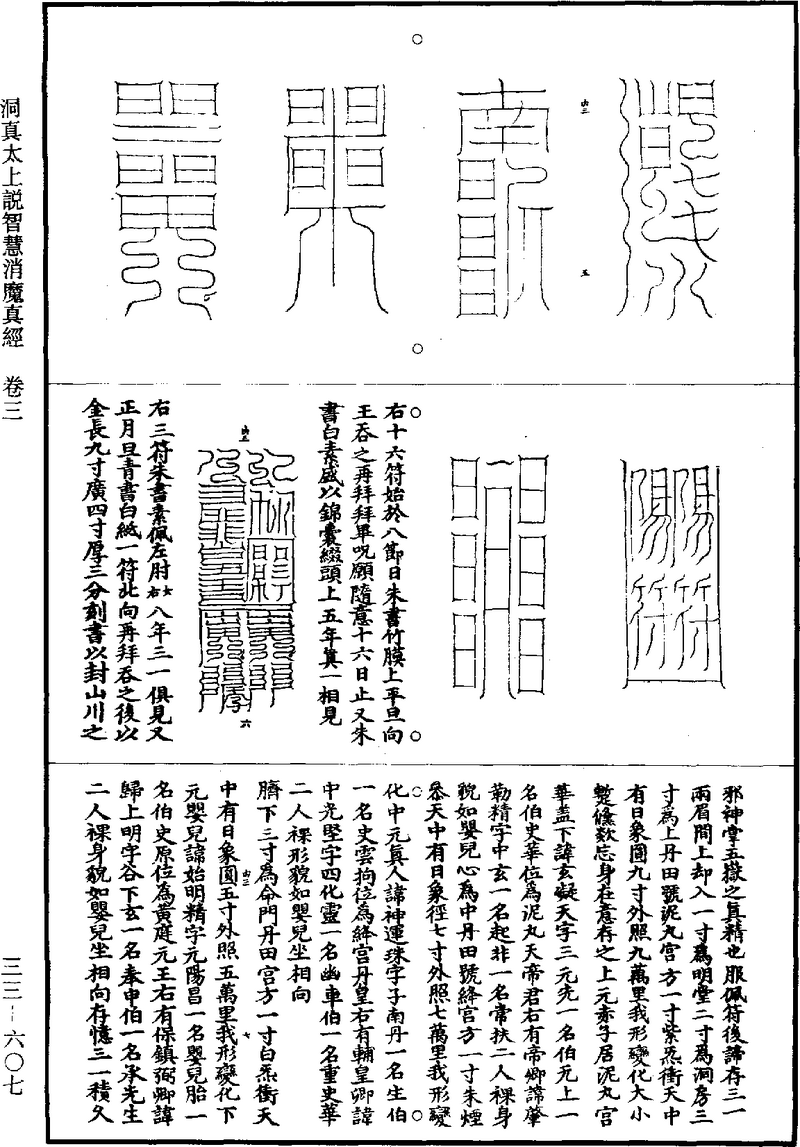 洞真太上說智慧消魔真經 卷三
三三-六〇七
右十六符始於八節日朱書竹膜上平旦向
王吞之再拜拜畢呪願隨意十六日止又朱
書白素盛以錦囊綴頭上五年真一相見
右三符朱書素佩左肘女右八年三一俱見又
正月旦青書白紙一符北向再拜吞之後以
金長九寸廣四寸厚三分刻書以封山川之
邪神掌五嶽之真精也服佩符後諦存三一
兩眉間上却入一寸為明堂二寸為洞房三
寸為上丹田號泥丸宮方一寸紫炁衝天中
有日象圓九寸外照九萬里我形變化大小
蹔儵欻忘身在意存之上元赤子居泥丸宮
華蓋下諱玄凝天字三元先一名伯元上一
名伯史華位為泥丸天帝君右有帝卿諱肇
勒精字中玄一名起非一名常扶二人裸身
貌如嬰兒心為中丹田號絳宮方一寸朱煙
參天中有日象徑七寸外照七萬里我形變
化中元真人諱神運珠字子南丹一名生伯
一名史雲拘位為絳宮丹皇右有輔皇卿諱
中光堅字四化靈一名幽車伯一名董史華
二人裸形貌如嬰兒坐相向
臍下三寸為命門丹田宮方一寸白炁衝天
中有日象圓五寸外照五萬里我形變化下
元嬰兒諱始明精字元陽昌一名嬰兒胎一
名伯史原位為黃庭元王右有保鎮弼卿諱
歸上明字谷下玄一名奉申伯一名承先生
二人裸身貌如嬰兒坐相向存憶三一積久